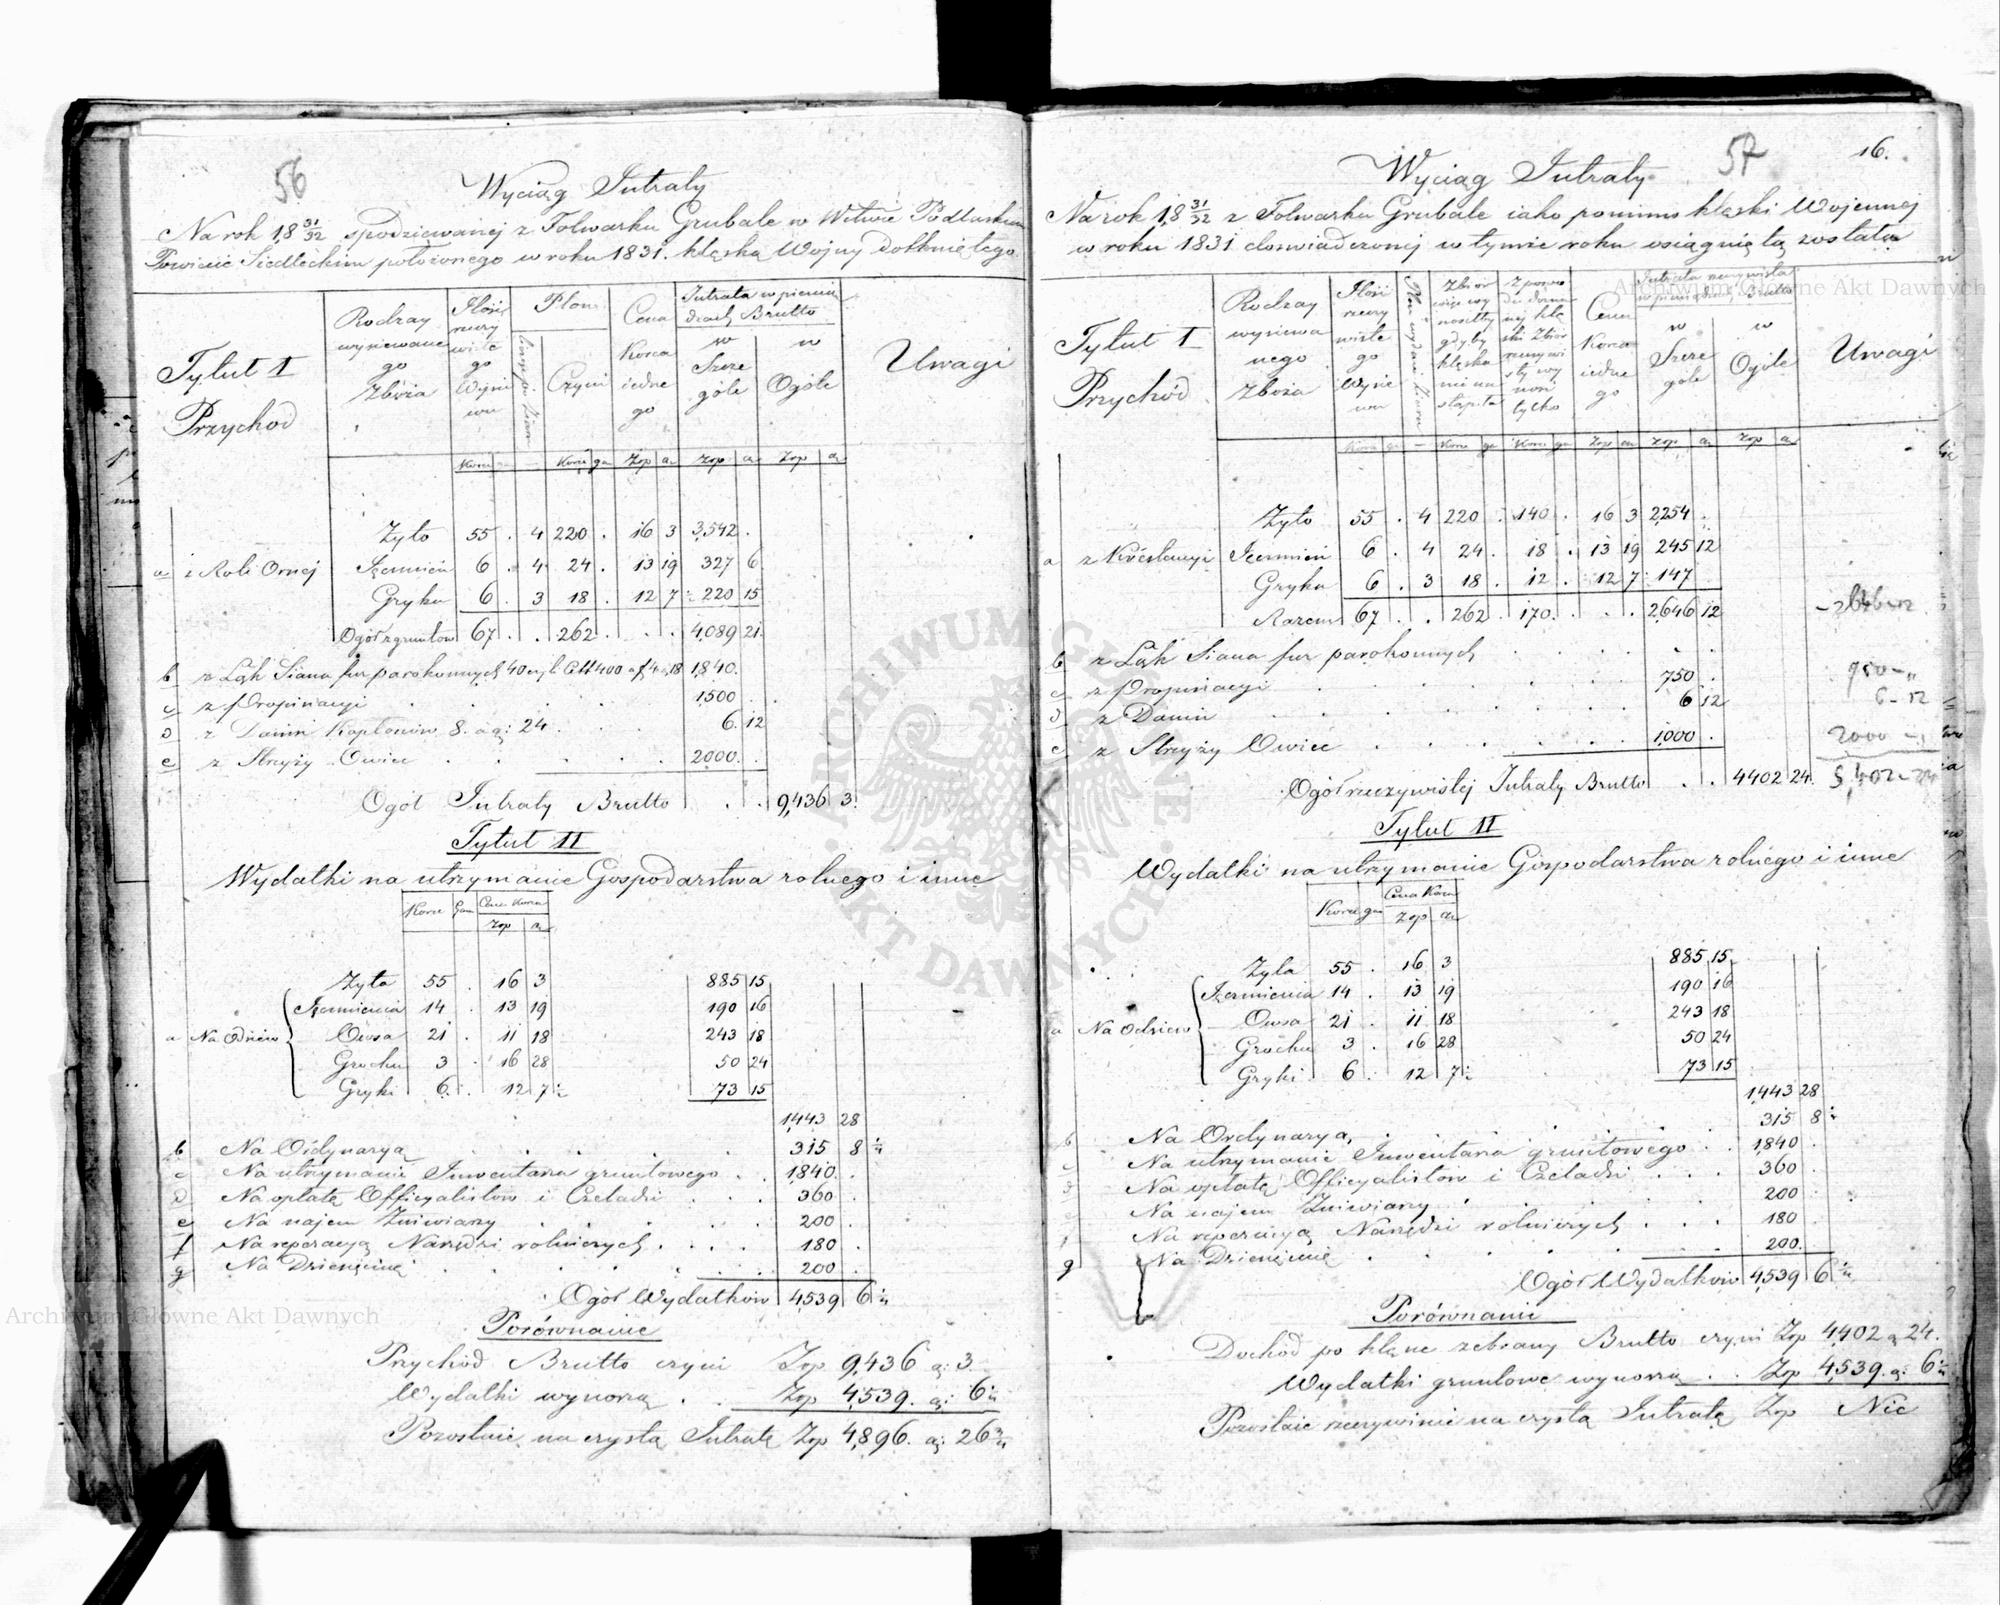 56
Wyciąg Intraty
Na rok 18 31/32 spodziewanej z Folwarku Grubale w Wótwie Podlaskim
Powiecie Siedleckim położonego w roku 1831. klęską Wojny dotkniętego
Tytuł I
Przychod
Rodzay wysiewanego Zboża
Ilość rzeczywistego Wysiewu
Plon
Czyni
Cena Korca iednego
Intrata w pieniądzach Brutto
w Szczególe
w Ogóle
Uwagi
Korce ga — Korce ga Złp gr Złp gr Złp gr
Żyto 55 . 4 220 . 16 3 3,542 .
a z Roli Ornej Jęczmień 6 . 4 24 . 13 19 327 6
Gryka 6 . 3 18 . 12 7½ 220 15
Ogół z gruntów 67 . . 262 . . . 4,089 21
b z Łąk Siana fur parokonnych 40 czyli Ctt 400 a f 4 gr 18 1,840.
c z Propinacyi . . . 1500 .
d z Danin Kapłonów 8. a gr: 24 . . . 6. 12
e z Strzyży Owiec . . . 2000. .
Ogół Intraty Brutto . . 9,436 3.
Tytuł II
Wydatki na utrzymanie Gospodarstwa rolnego i inne
Korce Gar Cena Korca
Złp gr
Żyta 55 . 16 3 885 15
Jęczmienia 14 . 13 19 190 16
a Na Odsiew Owsa 21 . 11 18 243 18
Grochu 3 . 16 28 50 24
Gryki 6 . 12 7½ 73 15
1,443 28
b Na Ordynaryą 315 8 ½
c Na utrzymanie Inwentarza gruntowego . . 1,840. .
d Na opłatę Officyalistów i Czeladzi . . . 360 .
e Na najem Żniwiarzy . . . . 200 .
f Na reperacyą Narzędzi rolniczych . . . . 180 .
g Na Dziesięcinę . . . . 200 .
Ogół Wydatków 4,539 6 ½
Porównanie
Przychód Brutto czyni Złp 9,436 gr: 3.
Wydatki wynoszą . . Złp 4,539. gr: 6
Pozostaie na czystą Intratę Złp 4,896. gr: 26
57
16.
Wyciąg Intraty
Na rok 18 31/32 z Folwarku Grubale iako pomimo klęski Wojennej
w roku 1831 doświadczonej w tymże roku osiągniętą została
Tytuł I
Przychód
Rodzay wysiewanego Zboża
Ilość rzeczywistego Wysiewu
Zbiór
gdyby klęska nie nastąpiła
Cena Korca iednego
Intrata rzeczywista w pieniądzach Brutto
w Szczególe
w Ogóle
Uwagi
Korce ga — Korce ga Korce ga Złp gr Złp gr Złp gr
Żyto 55 . 4 220 . 140 . 16 3 2,254 .
a z Kréscencyi Jęczmień 6 . 4 24 . 18 . 13 19 245 12
Gryka 6 . 3 18 . 12 . 12 7 147 .
Razem 67 . . 262 . 170. . . . 2,646 12
- 2646-12
b z Łąk Siana fur parokonnych . . . . . .
c z Propinacyi . . . . . . 750 .
750 - „
d z Danin . . . . . . 6 12
6 - 12
e z Strzyży Owiec . . . . . . 1,000 .
2000 -
Ogół rzeczywistej Intraty Brutto . . 4402 24.
5,402-24
Tytuł II
Wydatki na utrzymanie Gospodarstwa rolnego i inne
Korce ga Cena Korca
Złp gr
Żyta 55 . 16 3 885 15
Jęczmienia 14 . 13 19 190 16
a Na Odsiew Owsa 21 . 11 18 243 18
Grochu 3 . 16 28 50 24
Gryki 6 . 12 7½ 73 15
1,443 28
b Na Ordynaryą . 315 8 ½
c Na utrzymanie Inwentarza gruntowego . . 1,840 .
d Na opłatę Officyalistów i Czeladzi . . . 360 .
e Na najem Żniwiarzy . . . 200 .
f Na reperacyą Narzędzi rolniczych . . . 180 .
g Na Dziesięcinę . . . . 200 .
Ogół Wydatków 4,539 6 ½
Porównanie
Dochód po klęsce zebrany Brutto czyni Złp 4,402 gr 24.
Wydatki gruntowe wynoszą . . Złp 4,539. gr: 6
Pozostaie rzeczywiście na czystą Intratę Złp Nic
ARCHIWUM GŁÓWNE AKT DAWNYCH
Archiwum Główne Akt Dawnych
Archiwum Główne Akt Dawnych